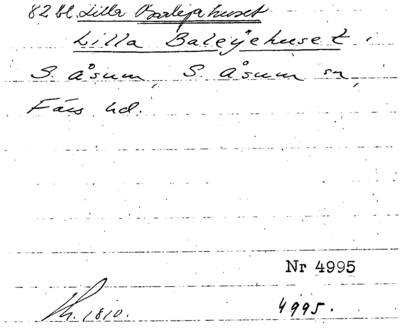 82 bl. Lilla Baalejahuset
Lilla Balejehuset,
S. Åsum, S. Åsum sn,
Färs hd.
Nr 4995
1810. 4995.